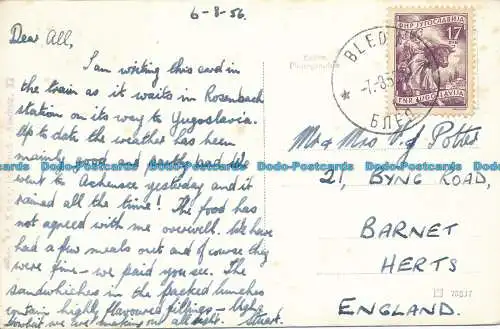 6-8-56
Dear All,
I am writing this card in
the train as it waits in Rosenbach
station on its way to Yugoslavia.
Up to date the weather has been
mainly good and partly bad. We
went to Achensee yesterday and it
rained all the time! The food has
not agreed with me overwell. We have
had a few meals out and of course they
were fine – we paid you see. The
sandwhiches in the packed lunches
contain highly flavoured fillings – ugh!
what we are making out all right. Stuart.
BLED
-7.8.5
БЛЕД
ФНР ЈУГОСЛАВИЈА
17
DIN
FNR JUGOSLAVIJA
Mr & Mrs V. J Potter
21, BYNG ROAD,
BARNET
HERTS
ENGLAND.
Dodo-Postcards Dodo-Postcards Dodo-Postcards Dodo-Postcards